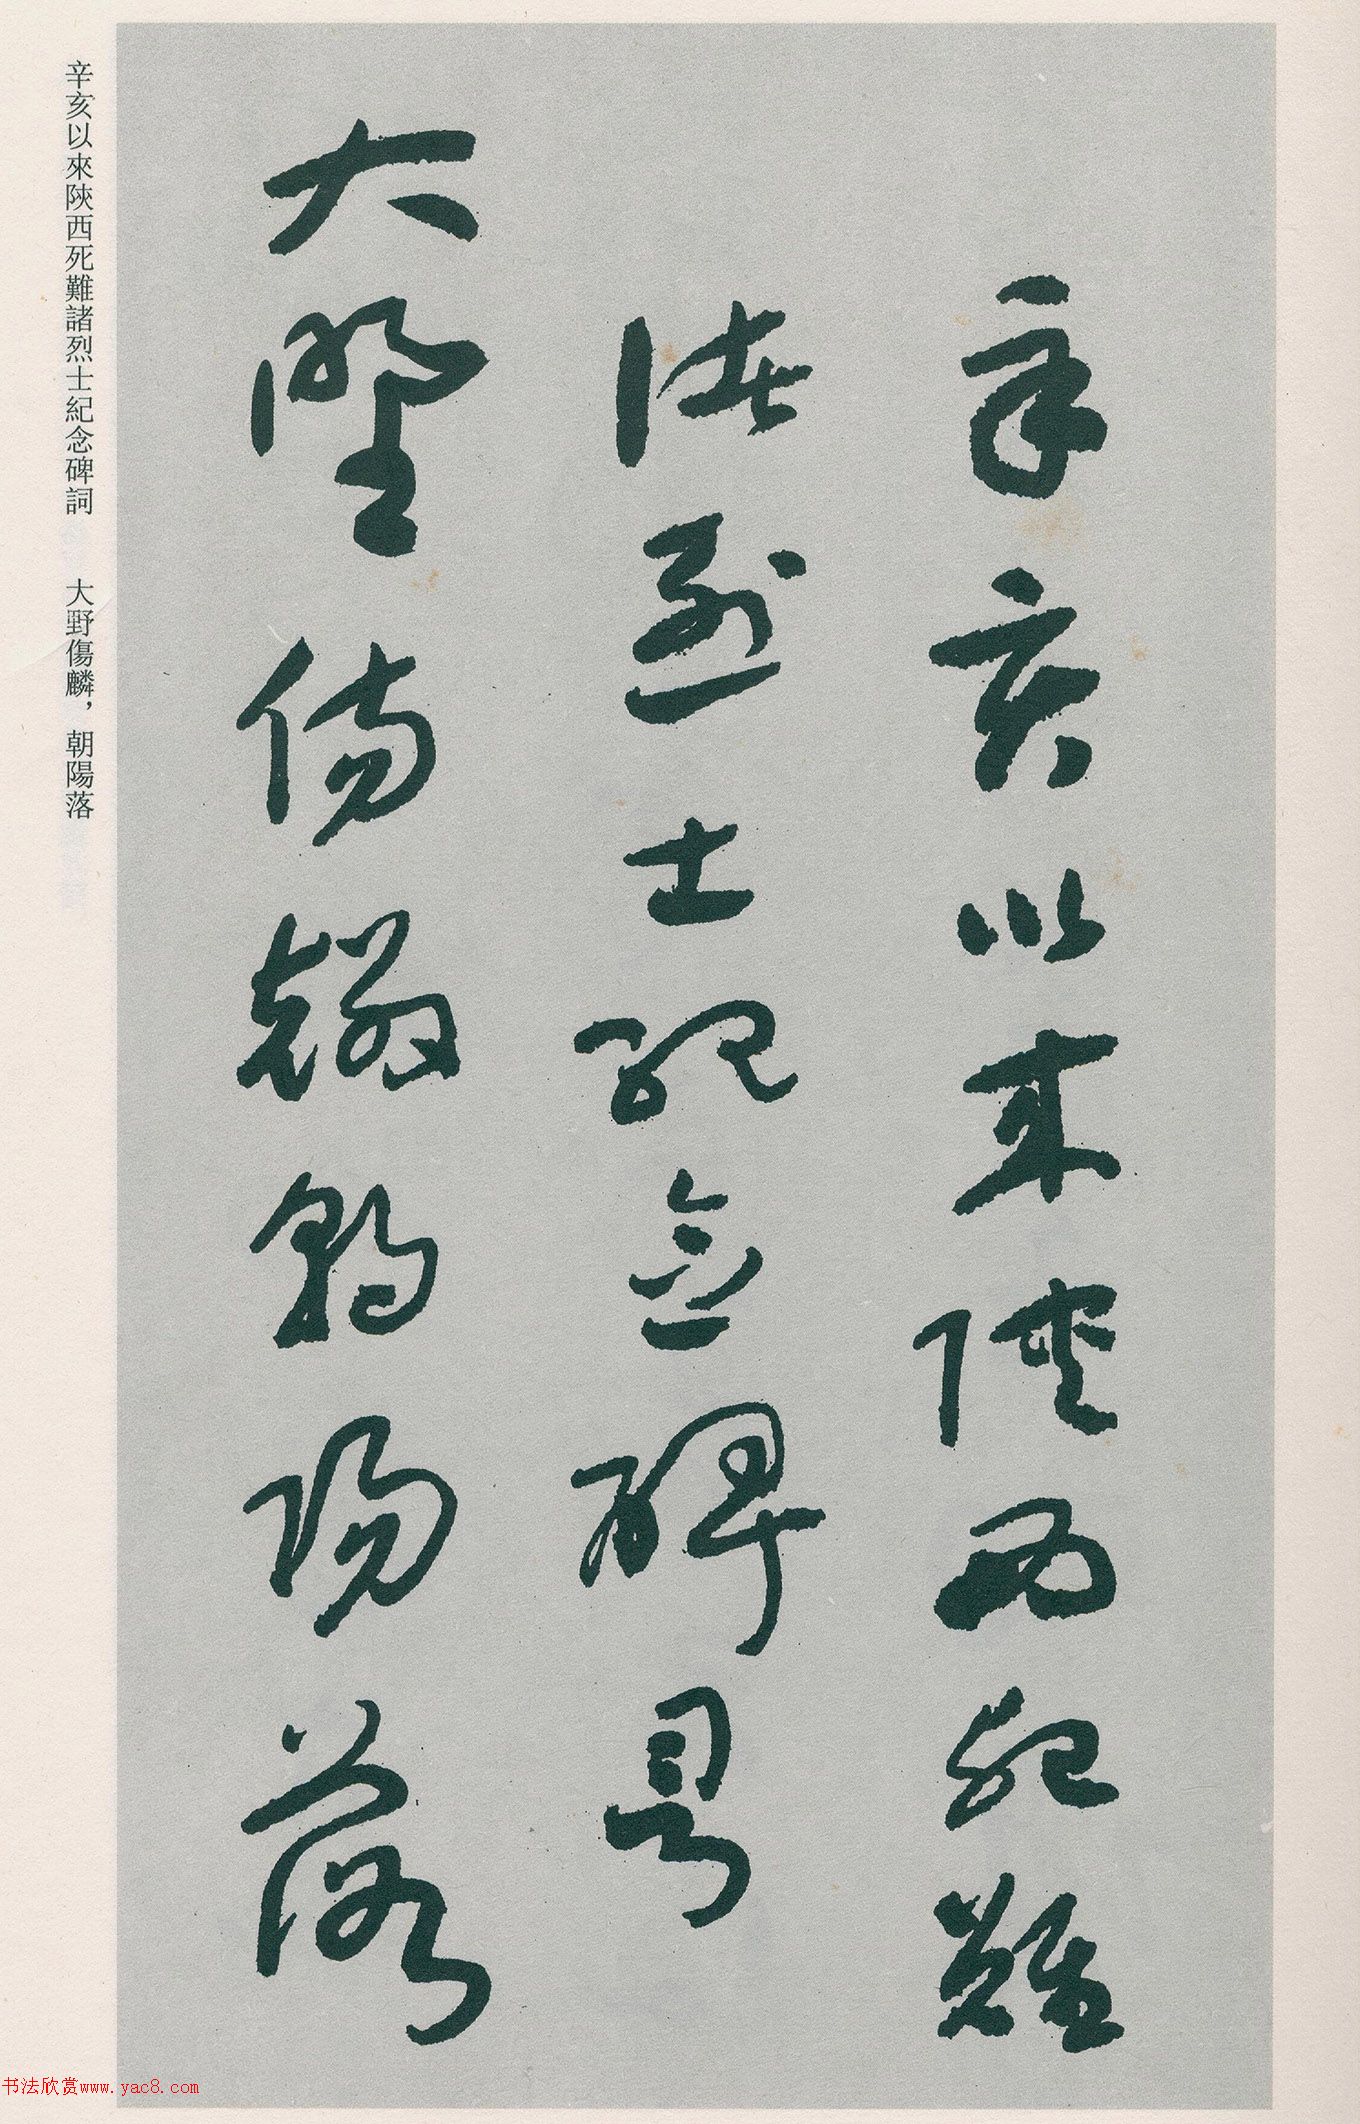 辛亥以來陝西死難
諸烈士紀念碑詞
大野傷麟朝陽落
辛亥以來陝西死難諸烈士紀念碑詞　大野傷麟，朝陽落
书法欣赏www.yac8.com